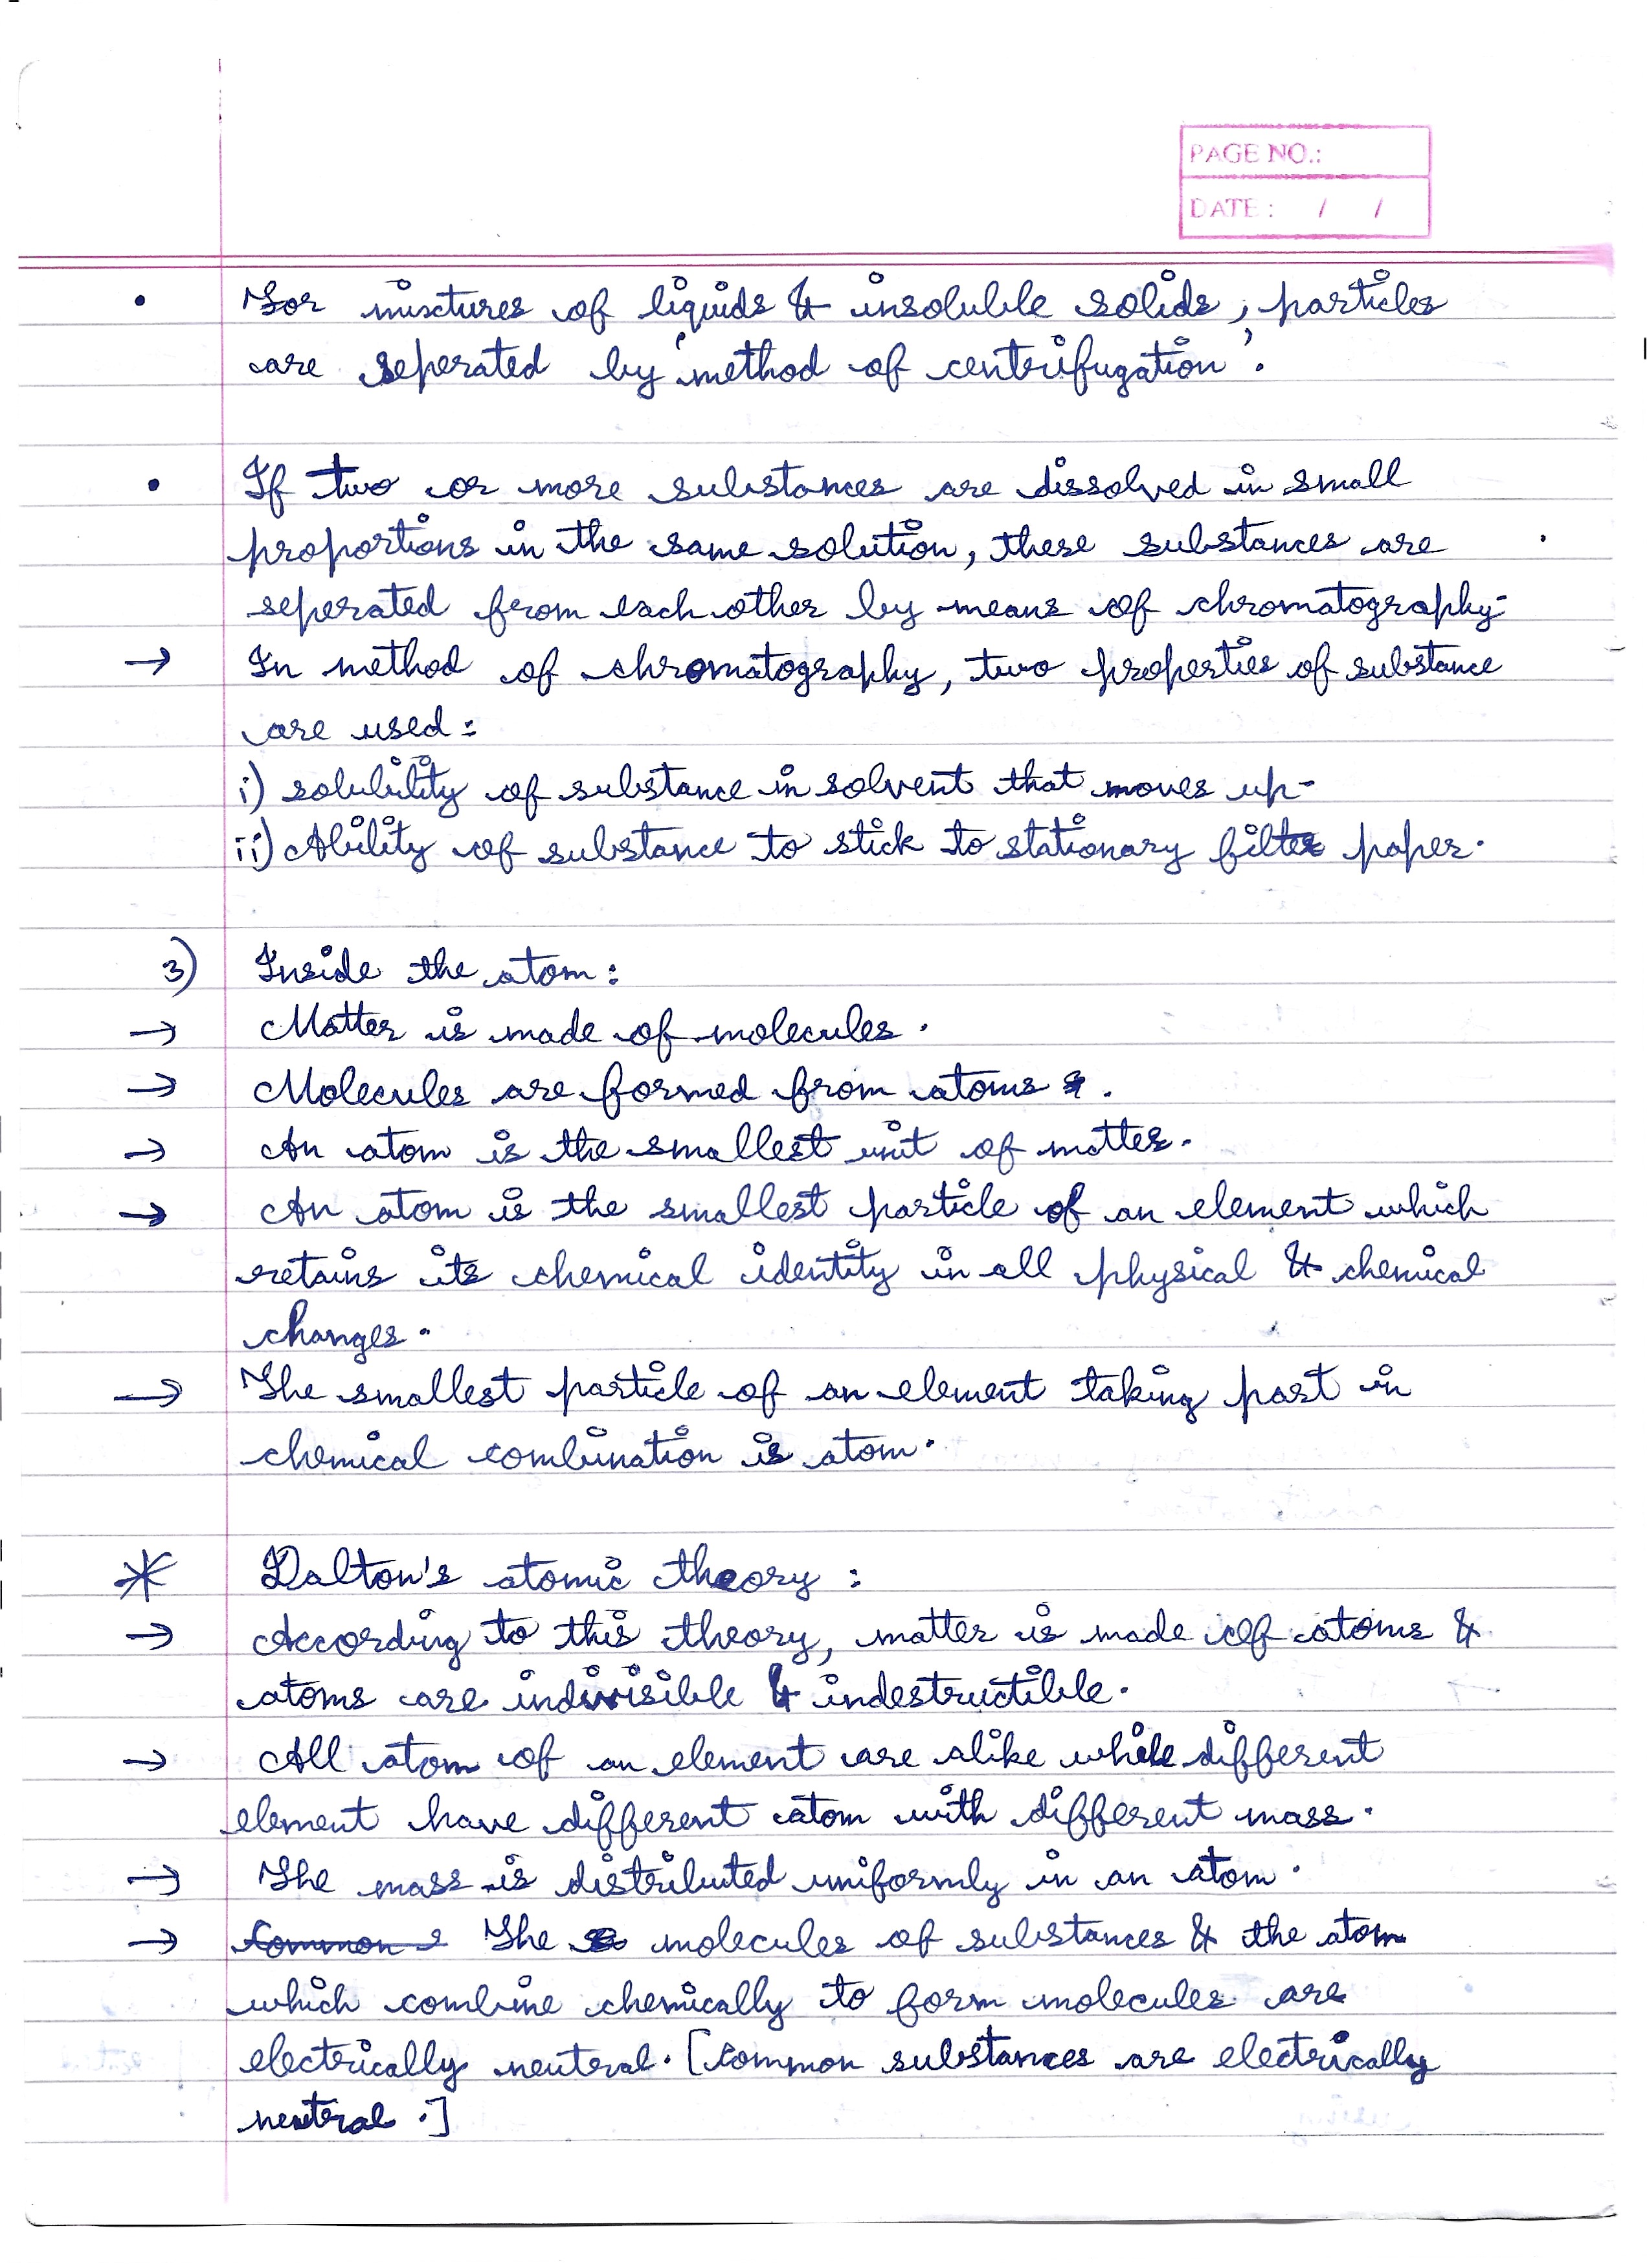 PAGE NO.:
DATE : / /
• For mixtures of liquids & insoluble solids, particles
are seperated by 'method of centrifugation'.
• If two or more substances are dissolved in small
proportions in the same solution, these substances are
seperated from each other by means of chromatography.
→ In method of chromatography, two properties of substance
are used:
i) solubility of substance in solvent that moves up.
ii) Ability of substance to stick to stationary filter paper.
3) Inside the atom:
→ Matter is made of molecules.
→ Molecules are formed from atoms.
→ An atom is the smallest unit of matter.
→ An atom is the smallest particle of an element which
retains its chemical identity in all physical & chemical
changes.
→ The smallest particle of an element taking part in
chemical combination is atom.
* Dalton's atomic theory:
→ According to this theory, matter is made of atoms &
atoms are indivisible & indestructible.
→ All atom of an element are alike while different
element have different atom with different mass.
→ The mass is distributed uniformly in an atom.
→ Common The molecules of substances & the atom
which combine chemically to form molecules are
electrically neutral. [Common substances are electrically
neutral.]